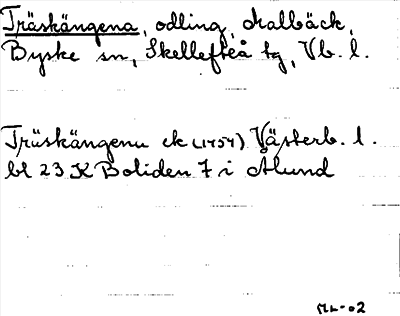 Träskängena, odling, Kalbäck,
Byske sn, Skellefteå tg, Vb. l.
Träskängena ek (1959) Västerb. l.
bl 23 K Boliden 7 i Ålund
ML-02